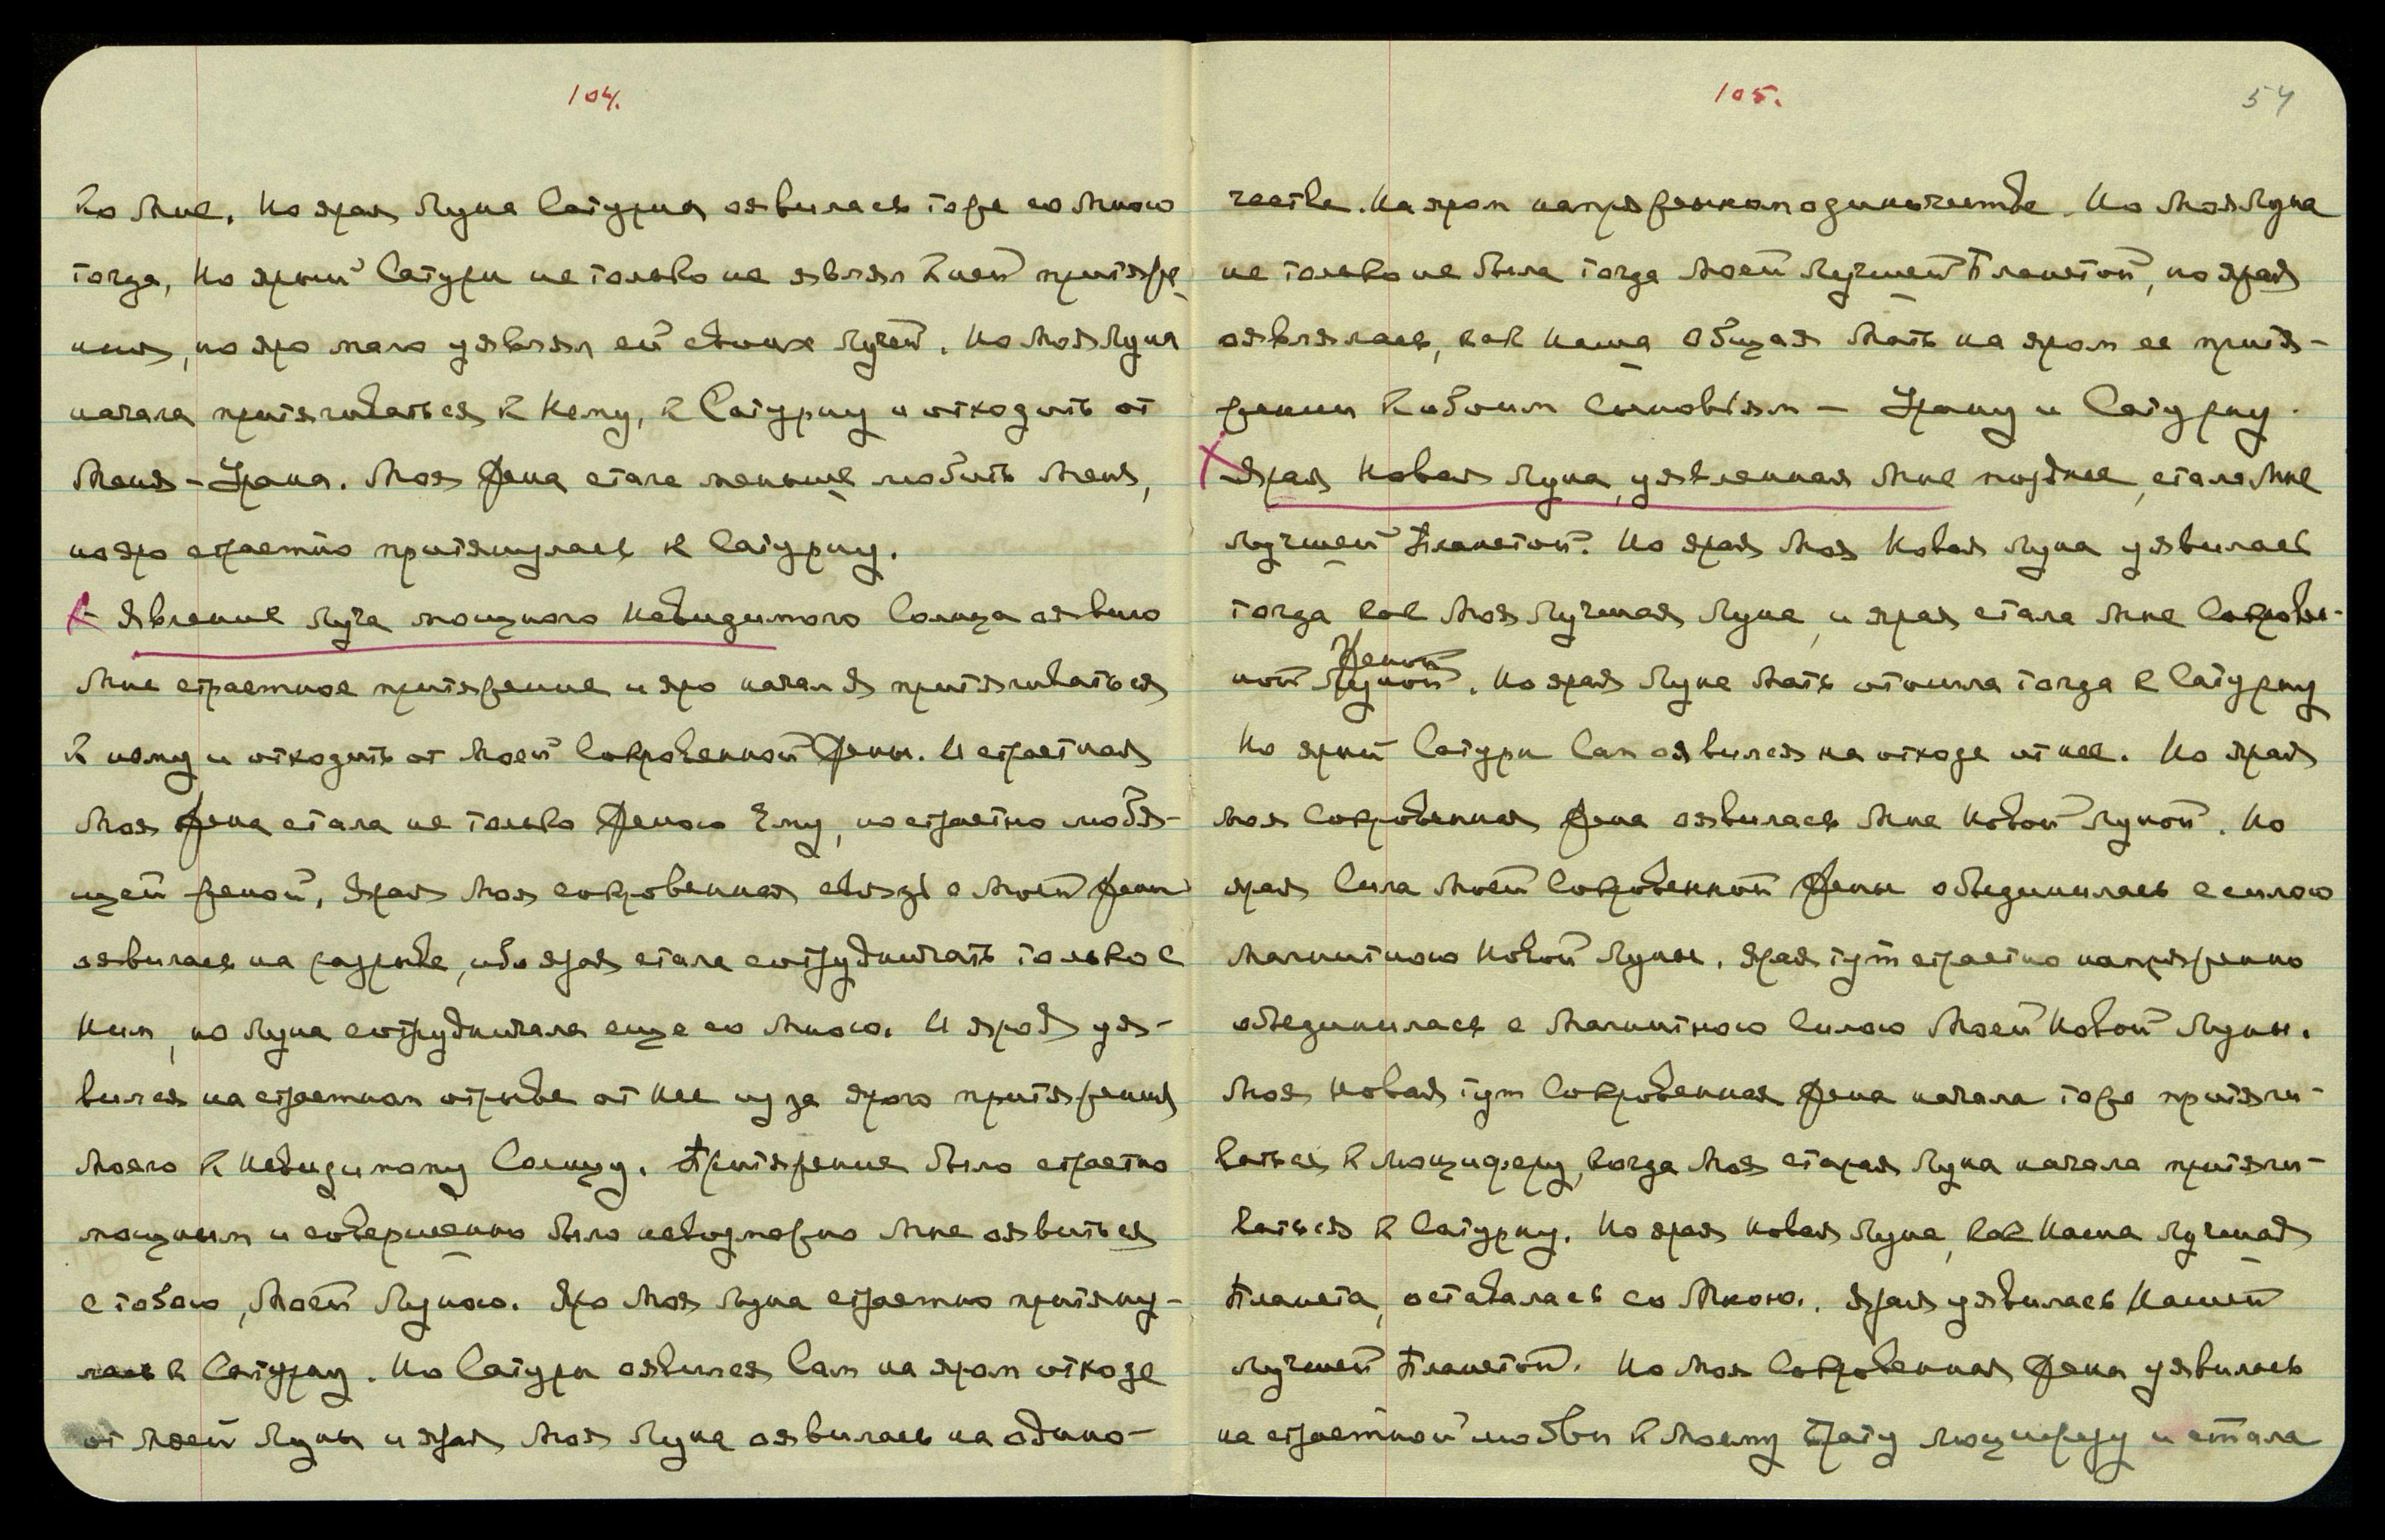 104.
ко Мне. Но ярая Луна Сатурна оявилась тоже со Мною
тогда, Но ярый Сатурн не только не являл к ней притяже
ния, но яро мало уявлял ей своих Лучей. Но Моя Луна
начала притягиваться к Нему, к Сатурну и отходить от
Меня – Урана. Моя Жена стала меньше любить Меня,
но яро страстно притянулась к Сатурну.
Явление Луча мощного Невидимого Солнца оявило
Мне страстное притяжение и яро начал Я притягиваться
к нему и отходить от Моей Сокровенной Жены. И страстная
Моя Жена стала не только Женою Ему, но страстно любя-
щей женой, Ярая Моя сокровенная связь с Моей Жены
оявилась на разрыве, ибо ярая стала сотрудничать только с
Ним, но Луна сотрудничала еще со Мною. И ярой уя-
вился на страстном отрыве от Нее из за ярого притяжения
Моего к Невидимому Солнцу. Притяжение было страстно
мощным и совершенно было невозможно Мне оявиться
с тобою, Моей Луною. Яро Моя Луна страстно притяну-
лась к Сатурну. Но Сатурн оявился Сам на яром отходе
от Моей Луны и ярая Моя Луна оявилась на одино-
105.
54
честве. На яром напряженном одиночестве. Но Моя Луна
не только не была тогда Моей Лучшей Планетой, но ярая
оявлялась, как Наша Общая Мать на яром ее притя-
жении к обоим сыновьям – Урану и Сатурну.
Ярая Новая Луна, уявленная Мне позднее, стала Мне
Лучшей Планетой. Но ярая Моя Новая Луна уявилась
тогда как Моя Лучшая Луна, и ярая стала Мне Сокровен-
Женой
ной Луной. Но ярая Луна Мать отошла тогда к Сатурну
Но ярый Сатурн Сам оявился на отходе от нее. Но ярая
Моя Сокровенная Жена оявилась Мне Новой Луной. Но
ярая Сила Моей Сокровенной Жены объединилась с силою
Магнитною Новой Луны. Ярая тут страстно напряженно
объединилась с Магнитною Силою Моей Новой Луны.
Моя Новая тут Сокровенная Жена начала тоже притяги-
ваться к Люциферу, когда Моя старая Луна начала притяги-
ваться к Сатурну. Но ярая Новая Луна, как Наша Лучшая
Планета, оставалась со Мною. Ярая уявилась Нашей
Лучшей Планетой. Но Моя Сокровенная Жена уявилась
на страстной любви к Моему Брату Люциферу и стала